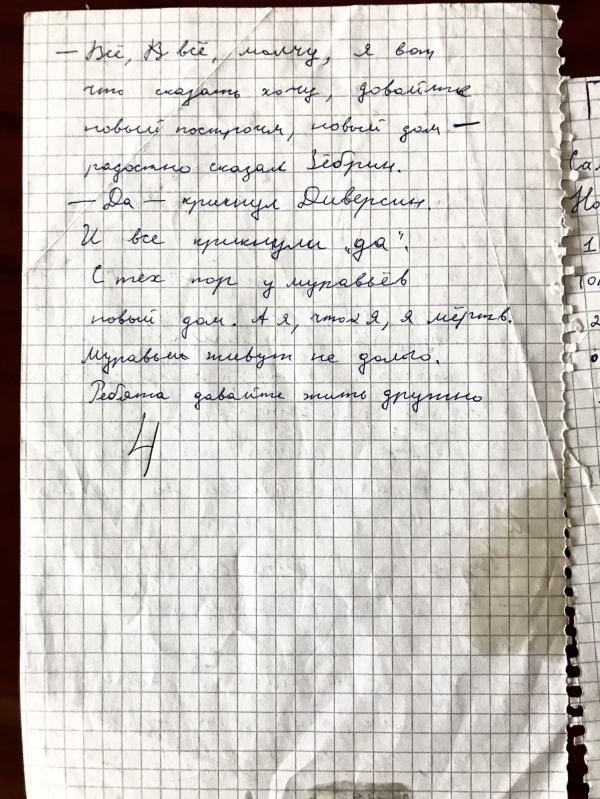 — Всё, В всё, молчу, я вот
что сказать хочу, довайте
новый построим, новый дом —
радостно сказал Зёбрин.
— Да — крикнул Диверсин
И все крикнули „да".
С тех пор у муравьёв
новый дом. А я, что я, я мёртв.
Муравьи живут не долго.
Ребята давайте жить дружно
4